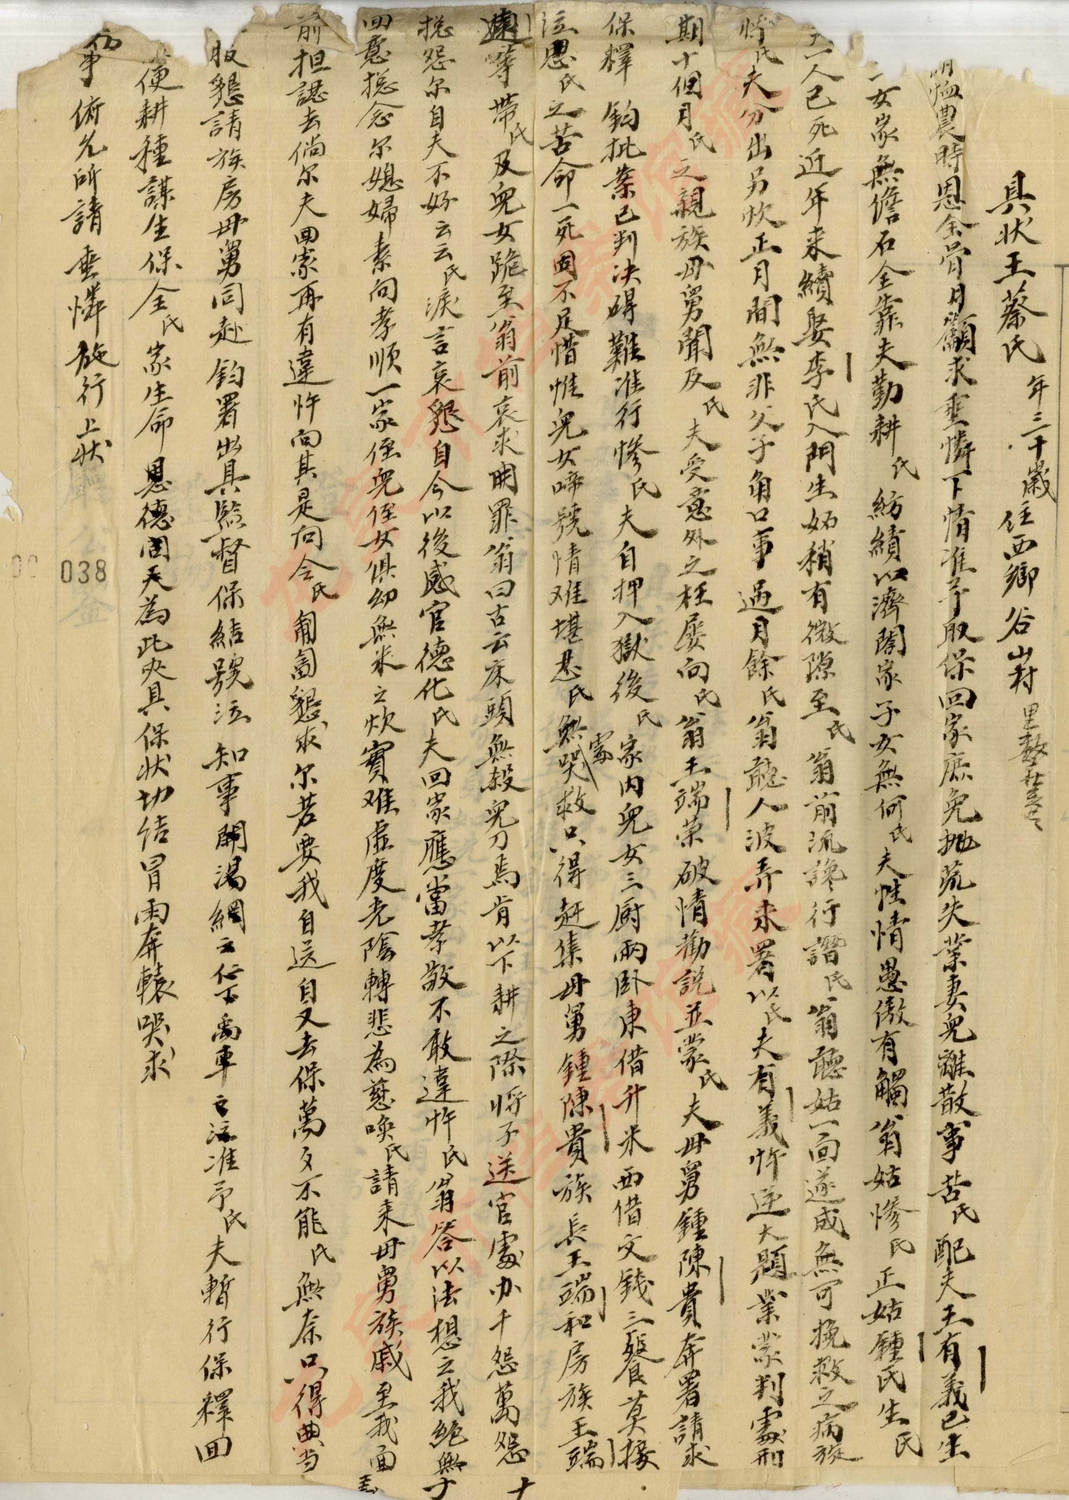 具状王蔡氏 年三十歲 住西鄉谷山村
農時恩全骨月籲求垂憐下情准予取保回家庶免抛荒失業妻兒離散事苦氏配夫王有義已生
女家無儋石全靠夫勤耕氏紡績以濟闔家子女無何氏夫性情愚傲有觸翁姑慘氏正姑鍾氏生氏
一人已死近年來續娶李氏入門生妬稍有微隙至氏翁前流讒行譖氏翁聽姑一面遂成無可挽救之病旋
將氏夫分出另炊正月間無非父子角口事過月餘氏翁聽人波弄來署以氏夫有義忤逆大題業蒙判處刑
期十個月氏之親族母舅聞及氏夫受意外之枉屢向氏翁王端榮破情勸說並蒙氏夫母舅鍾陳貴奔署請求
保釋 鈞批業已判决碍難准行慘氏夫自押入獄後氏家内兒女三厨兩卧東借升米西借文錢三餐莫接
泣思氏之苦命一死固不足惜惟兒女啼號情难堪悬氏無處哭救只得赶集母舅鍾陳貴族長王端和房族王端
遠等帶氏及兒女跪至翁前哀求開罪翁曰古云床頭無殺兒刀焉肯以下耕之際將子送官處办千怨萬怨
摠怨尔自夫不好云云氏淚言哀懇自今以後感官德化氏夫回家應當孝敬不敢違忤氏翁答以法想之我絕無
回意摠念尔媳婦素向孝順一家侄兒侄女俱幼無米之炊實难虚度光陰轉悲為慈唤氏請来母舅族戚至我面
前担諾去倘尔夫回家再有違忤向其是问令氏匍匐懇求尔若要我自送自又去保萬万不能氏無奈只得典当
服懇請族房母舅同赴 鈞署出具監督保結號泣 知事開湯網之仁下禹車之泣准予氏夫暫行保釋回
便耕種謀生保全氏家生命 恩德罔天為此央具保状切结冒雨奔轅哭求
知事 俯允所請垂憐施行上状
038